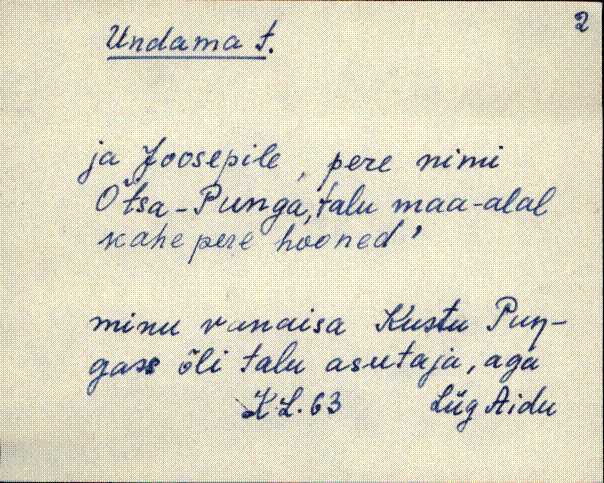 2
Undama t.
ja Joosepile, pere nimi
Otsa-Punga, talu maa-alal
kahe pere hooned’
minu vanaisa Kustu Puŋ-
gass õli talu asutaja, aga
KL. 63 Lüg Aidu